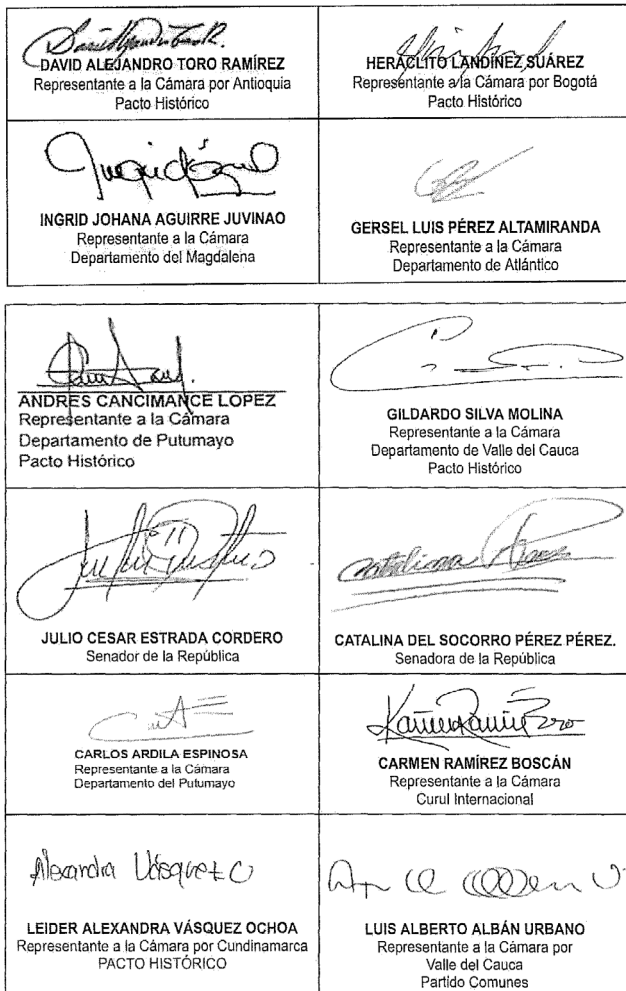 DAVID ALEJANDRO TORO RAMÍREZ
Representante a la Cámara por Antioquia
Pacto Histórico
HERÁCLITO LANDÍNEZ SUÁREZ
Representante a la Cámara por Bogotá
Pacto Histórico
INGRID JOHANA AGUIRRE JUVINAO
Representante a la Cámara
Departamento del Magdalena
GERSEL LUIS PÉREZ ALTAMIRANDA
Representante a la Cámara
Departamento de Atlántico
ANDRES CANCIMANCE LOPEZ
Representante a la Cámara
Departamento de Putumayo
Pacto Histórico
GILDARDO SILVA MOLINA
Representante a la Cámara
Departamento de Valle del Cauca
Pacto Histórico
JULIO CESAR ESTRADA CORDERO
Senador de la República
Catalina Pérez
CATALINA DEL SOCORRO PÉREZ PÉREZ.
Senadora de la República
CARLOS ARDILA ESPINOSA
Representante a la Cámara
Departamento del Putumayo
CARMEN RAMÍREZ BOSCÁN
Representante a la Cámara
Curul Internacional
Alexandra Vásquez O
LEIDER ALEXANDRA VÁSQUEZ OCHOA
Representante a la Cámara por Cundinamarca
PACTO HISTÓRICO
LUIS ALBERTO ALBÁN URBANO
Representante a la Cámara por
Valle del Cauca
Partido Comunes